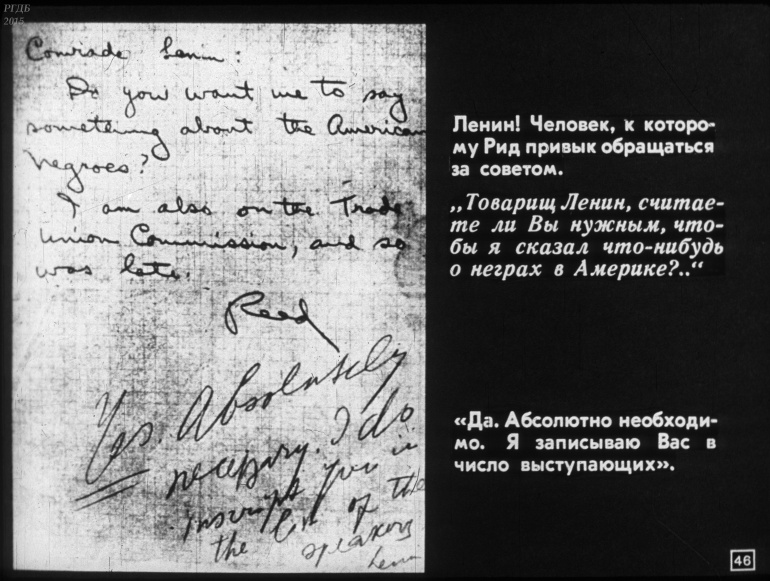 РГДБ
2015
Comrade Lenin:
Do you want me to say
something about the American
Negroes?
I am also on the Trade
Union Commission, and so
was late.
Reed
Yes. Absolutely
necessary. I do
inscript you in
the list of the
speakers
Lenin
Ленин! Человек, к которо-
му Рид привык обращаться
за советом.
„Товарищ Ленин, считае-
те ли Вы нужным, что-
бы я сказал что-нибудь
о неграх в Америке?..“
«Да. Абсолютно необходи-
мо. Я записываю Вас в
число выступающих».
46